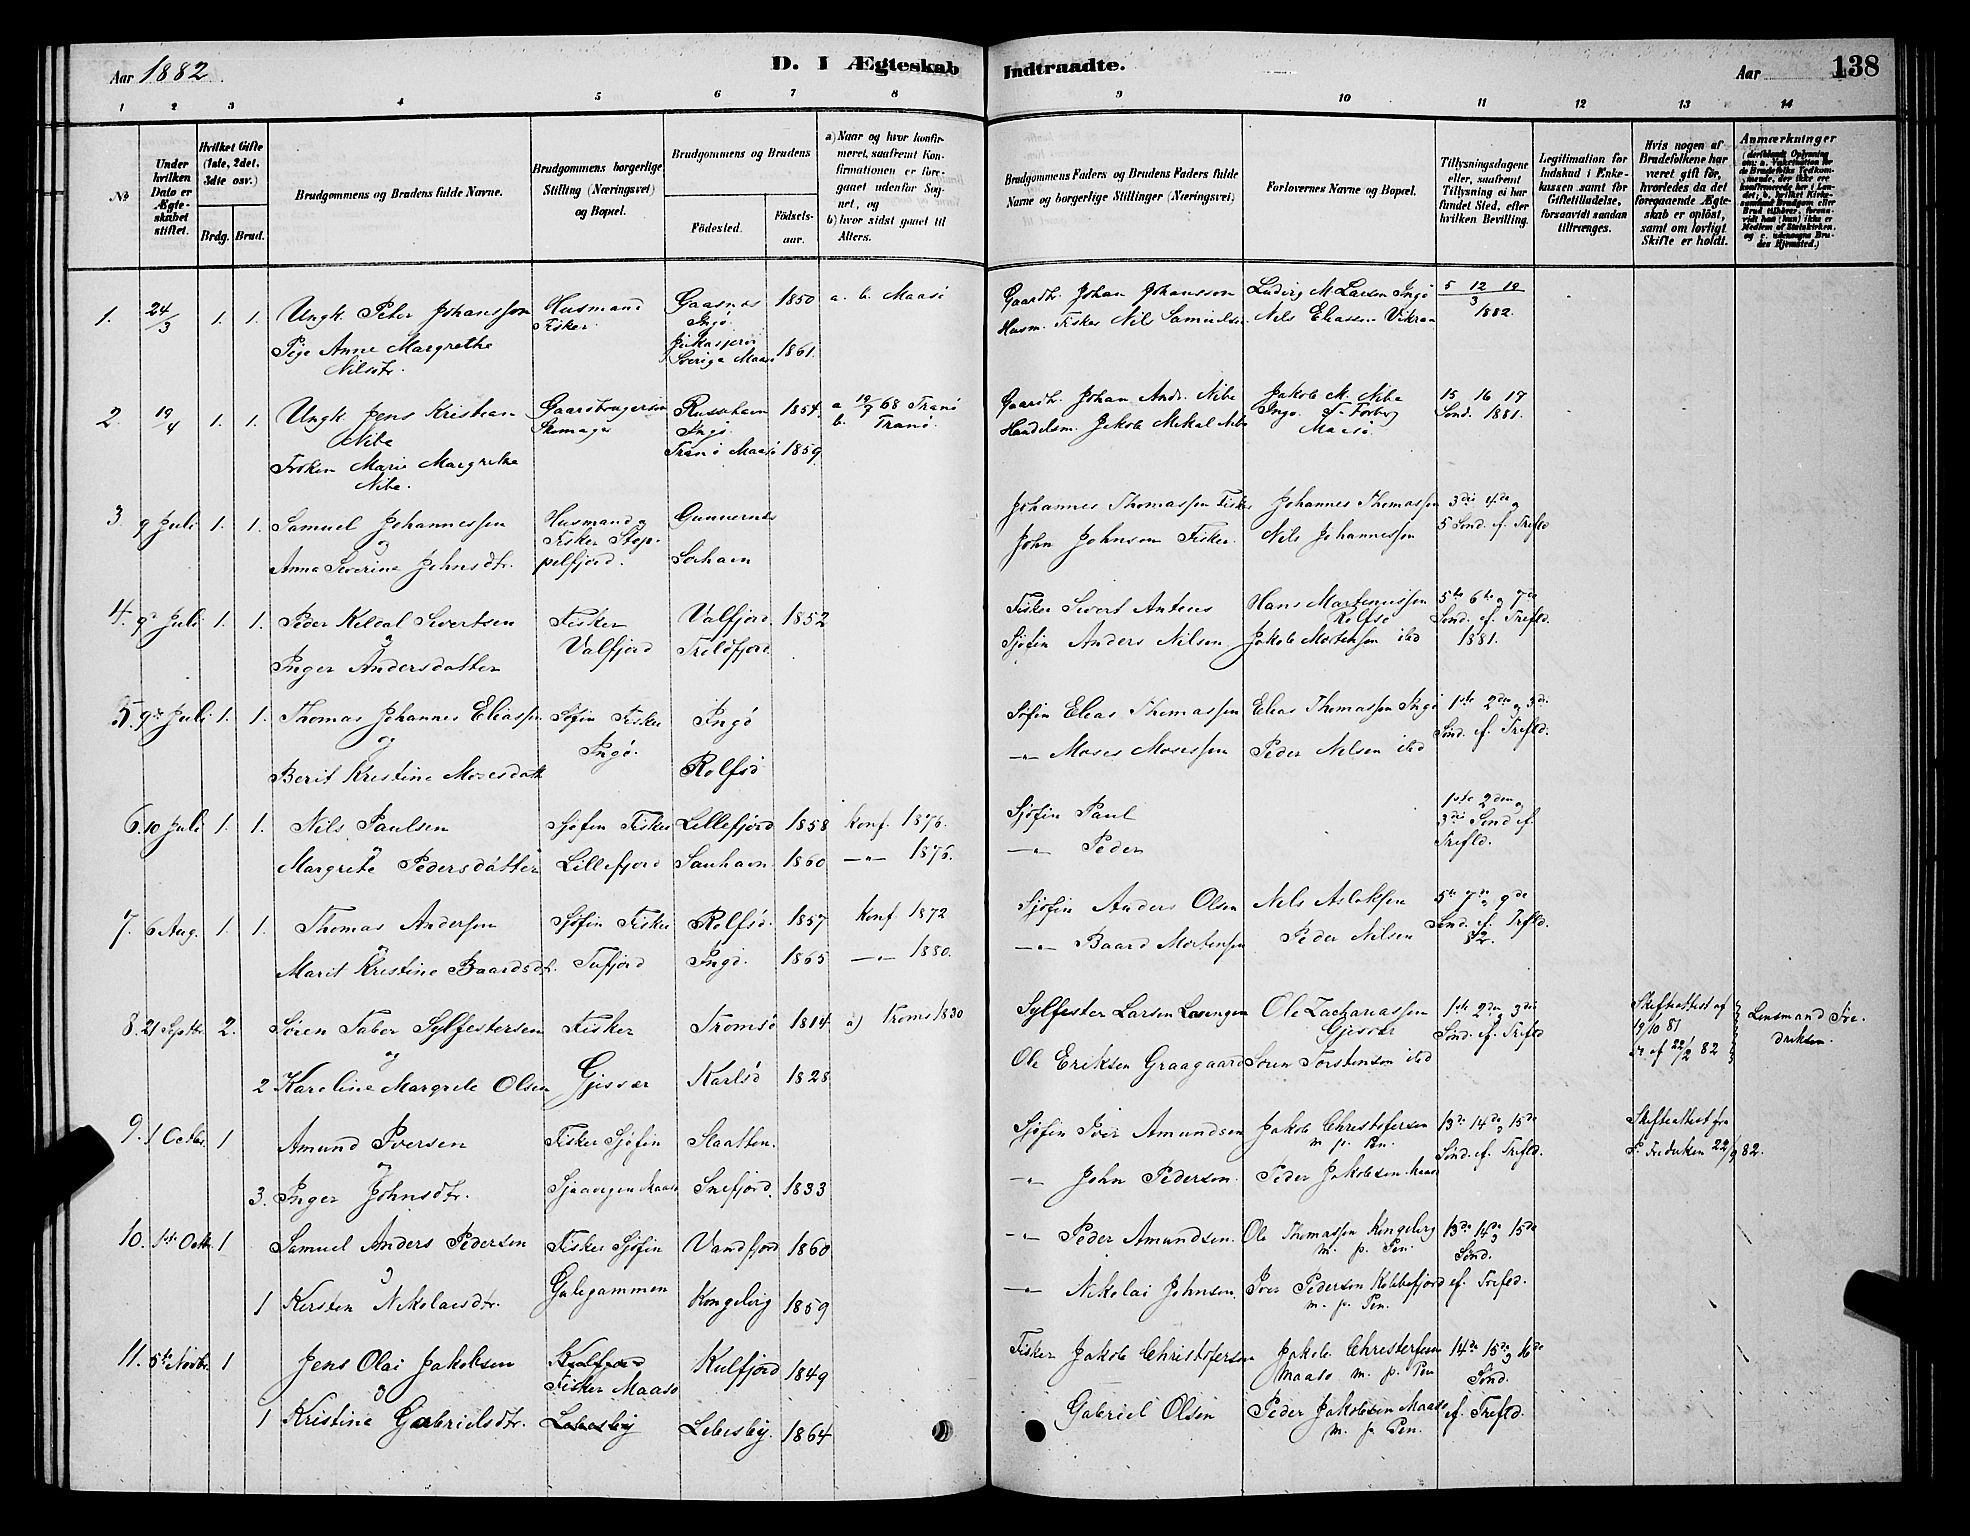 Aar 1882
D. I Ægteskab
Indtraadte.
Aar
138
1 2 3 4 5 6 7 8 9 10 11 12 13 14
No
Under
hvilken
Dato er
Ægte-
skabet
stiftet.
Hvilket Gifte
(1ste, 2det,
3die osv.)
Brdg. Brud.
Brudgommens og Brudens fulde Navne.
Brudgommens borgerlige
Stilling (Næringsvei)
og Bopæl.
Brudgommens og Brudens
Fødested.
Fødsels-
aar.
a) Naar og hvor konfir-
meret, saafremt Kon-
firmationen er fore-
gaaet udenfor Sog-
net, og
b) hvor sidst gaaet til
Alters.
Brudgommens Faders og Brudens Faders fulde
Navne og borgerlige Stillinger (Næringsvei)
Forlovernes Navne og Bopæl.
Tillysningsdagene
eller, saafremt
Tillysning ei har
fundet Sted, efter
hvilken Bevilling.
Legitimation for
Indskud i Enke-
kassen samt for
Giftetilladelse,
forsaavidt saadan
tiltrænges.
Hvis nogen af
Brudefolkene har
været gift før,
hvorledes da det
foregaaende Ægte-
skab er opløst,
samt om lovligt
Skifte er holdt.
Anmærkninger
1. 24/3 1. 1. Ungk. Peter Johanssen Husmand Gaasnes 1850 a. b. Maasø Gaardbr. Johan Johansson Ludvig M Larsen Ingø 5 12 19
Fisker Ingø Husm. Fisker Nils Samuelsen Nils Eliassen Vikran 3 1882.
Pige Anne Margrethe Sverige Maasø 1861.
Nilsdtr.
2. 19/4 1. 1. Ungk. Jens Kristian Gaardbrugersøn Russehavn 1854. a 19/9 68 Tranø Gaardbr. Johan Andr. Nibe Jakob M. Nibe 15 16 17
Nibe Skomager Ingø b. Tranø. Handelsm. Jakob Mikal Nibe Ingø Forberg Sønd. 1881.
Frøken Marie Margrethe Tranø Maasø 1859 Maasø.
Nibe.
3 9 Juli 1. 1. Samuel Johannessen Husmand og Gunnernes Johannes Thomassen Fisker Johannes Thomassen 3die 4de og
og Fisker Slop- John Johnsen Fisker. Nils Johannessen 5 Sønd. ef. Trefld.
Anna Severine Johnsdtr. pelfjord. Sørhavn
4. 9de Juli 1. 1. Peder Keldal Sivertsen Fisker Valfjord 1852 Fisker Sivert Antens Hans Martinussen 5te 6te og 7de
og Valfjord Troldfjord Rolfsø Sønd. ef. Trefld.
Inger Andersdatter Sjøfin Anders Nilsen Jakob Mortensen itd 1881.
5. 9de Juli 1. 1. Thomas Johannes Eliassen Sjøfin Fisker Ingø Sjøfin Elias Thomassen Elias Thomassen Ingø 1ste 2den og 3die
og Ingø. Sønd. ef. Trefld.
Berit Kristine Mosesdatt. Rolfsø — " — Moses Mosessen Peder Nilsen itd
6. 10 Juli 1. 1. Nils Paulsen Sjøfin Fisker Lillefjord 1858 Konf. 1876. Sjøfin Paul 1ste 2den og
3die Sønd ef.
Margrete Pedersdatter Lillefjord Sanhavn 1860 — " — 1876. — " — Peder Trefld.
7. 6 Aug. 1. 1. Thomas Andersen Sjøfin Fisker Rolfsø 1857 Konf. 1872 Sjøfin Anders Olsen Nils Aslaksen 5te 7de og 9de
Sønd. ef. Trefld.
Marit Kristine Baardsdtr. Tufjord Ingø. 1865 — " — 1880. — " — Baard Mortensen Peder Nilsen 82.
8. 21 Septbr. 2. Søren Tabor Sylfestersen Fisker Tromsø 1814 a) Troms 1830 Sylfester Larsen Ole Zachariassen 1ste 2den og 3die Skifteattest af Lensmand Fre-
og Gjesvær Sønd. ef. Trefld 19/10 81 driksen.
2 Karoline Margrete Olsen Gjesvær Karlsø 1828 Ole Eriksen Graagaard Søren Torstensen itd 22/2 82
9. 1 Octbr. 1 Amund Iversen Fisker Sjøfin Slaatten. Sjøfin Iver Amundsen Jakob Christofersen 13de 14de og 15de Skifteattest fra
og m. p. Pen. Sønd. ef. Trefld. Fredriksen 22/9 82.
3. Inger Johnsdtr. Maasø Snefjord. 1833 — " — John Pedersen Peder Jakobsen Maasø
10. 1ste Octbr. 1 Samuel Anders Pedersen Fisker Sjøfin Vandfjord 1860 — " — Peder Amundsen. Ole Thomassen Kongelvig 13de 14de og 15de
og Galegammen m. p. Pen. Sønd.
1 Kirsten Nikolaisdtr. Kongelvig 1859 — " — Nikolai Johnsen. Iver Pedersen Kobbefjord ef. Trefld.
m. p. Pen.
11. 5te Novbr. 1 Jens Olai Jakobsen Kulfjord Kulfjord 1849 Fisker Jakob Christofersen Jakob Christofersen 14de 15de og 16de
og Fisker Maasø Maasø m. p. Pen Sønd.
1 Kristine Gabrielsdtr. Lebesby Lebesby. 1864 Gabriel Olsen Peder Jakobsen Maasø ef. Trefld.
m. p. Pen.